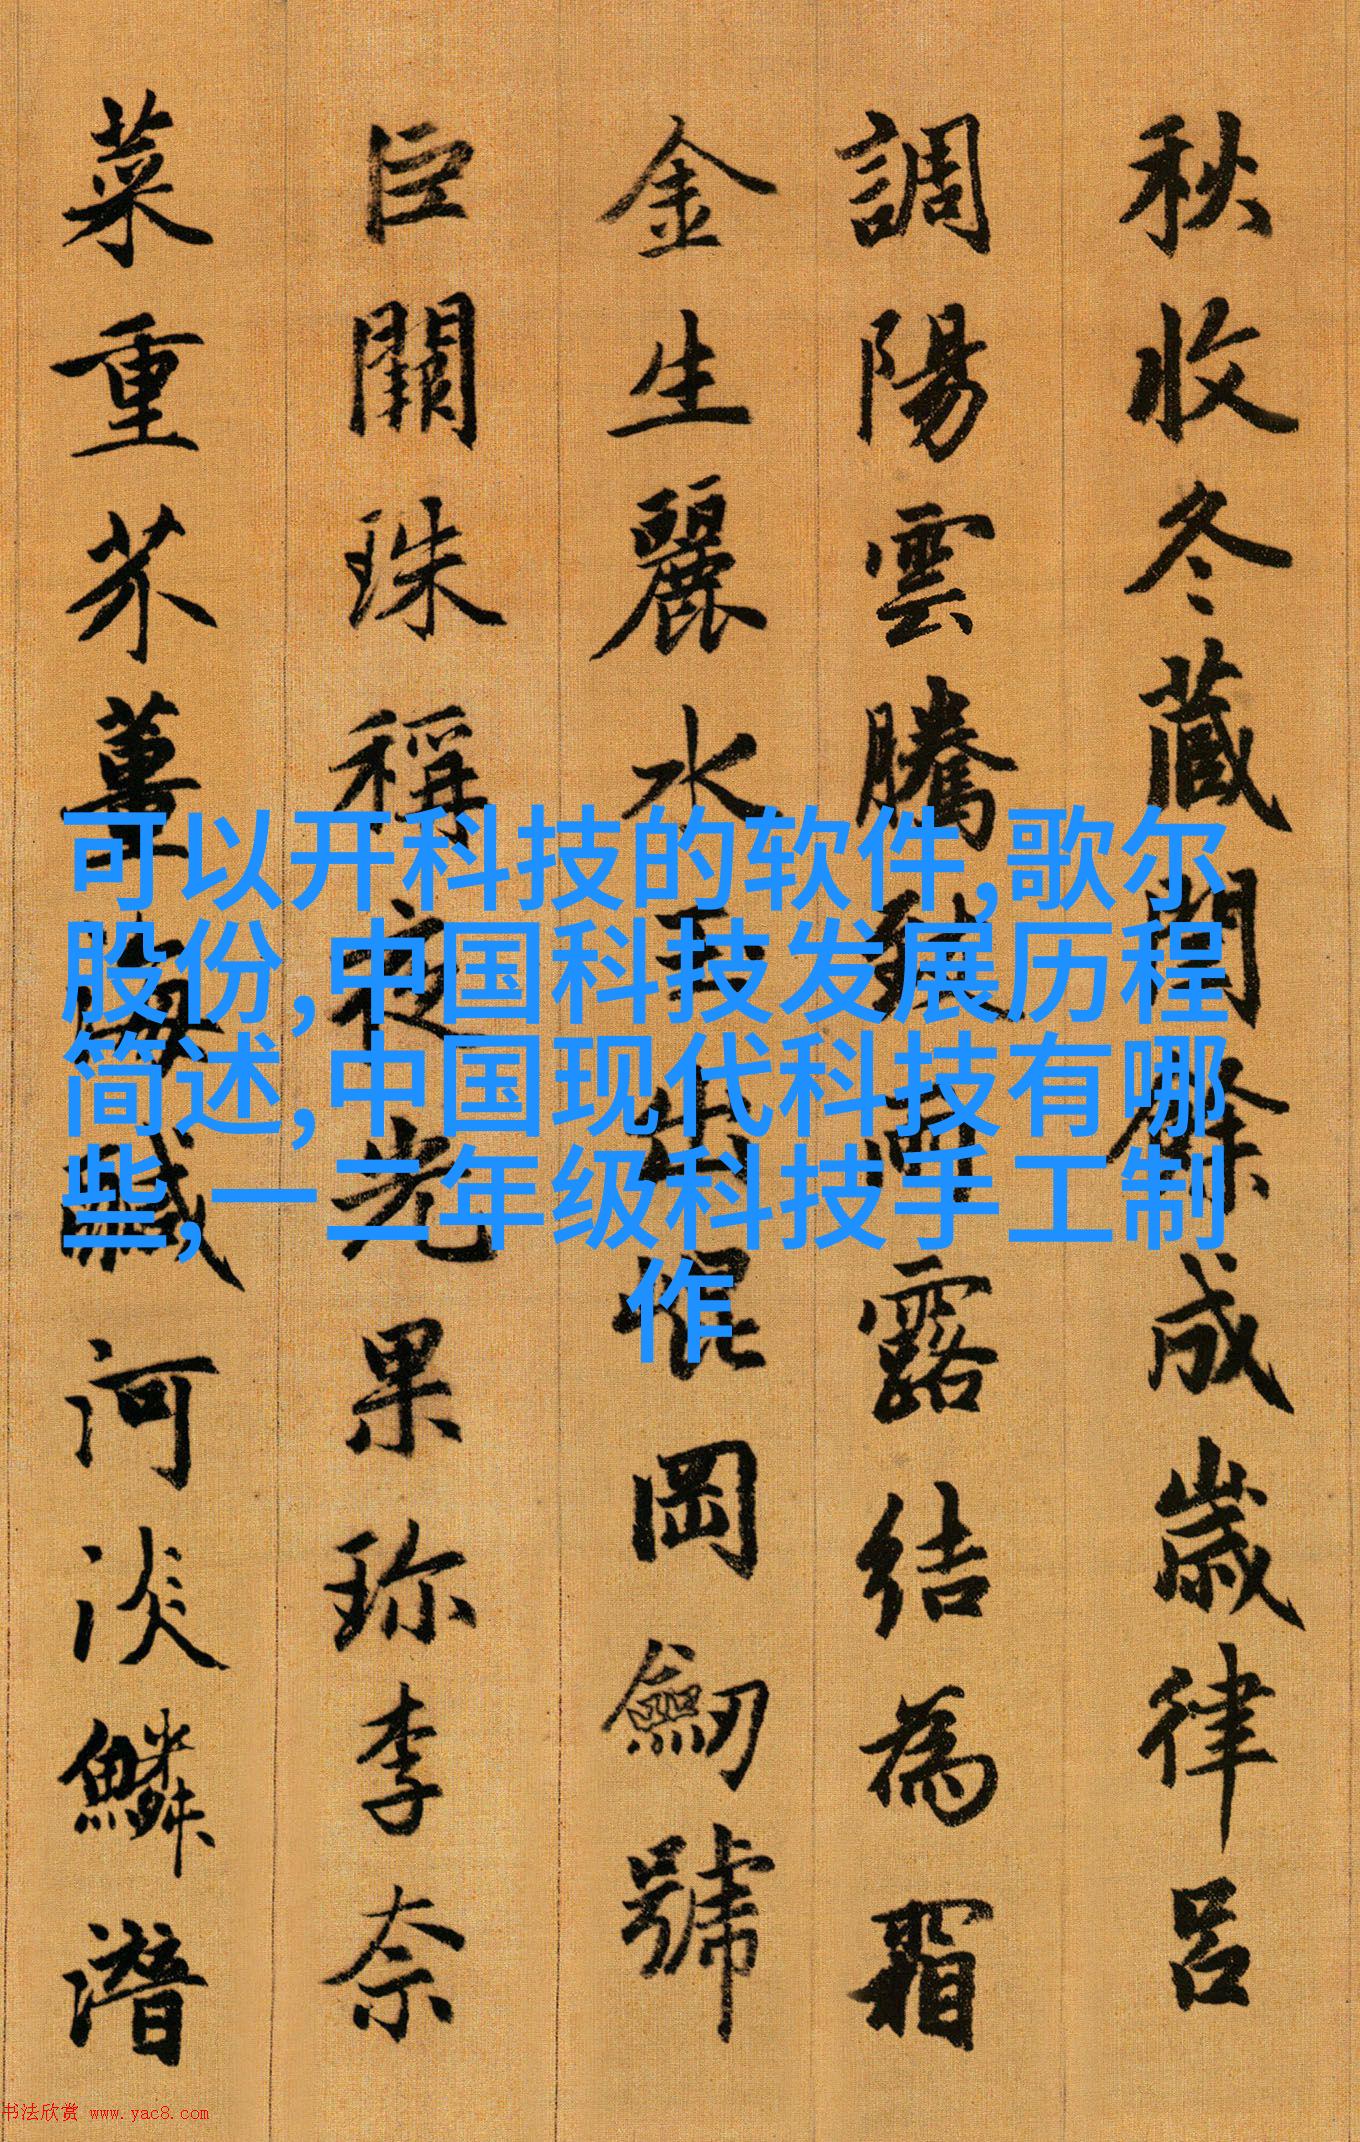 秋收冬藏閏餘成歲律呂
調陽雲騰致雨露結為霜
金生麗水玉出崐岡劒號
巨闕珠稱夜光果珎李奈
菜重芥薑海鹹河淡鱗潛
可以开科技的软件,歌尔
股份,中国科技发展历程
简述,中国现代科技有哪
些,一二年级科技手工制
作
书法欣赏 www.yac8.com